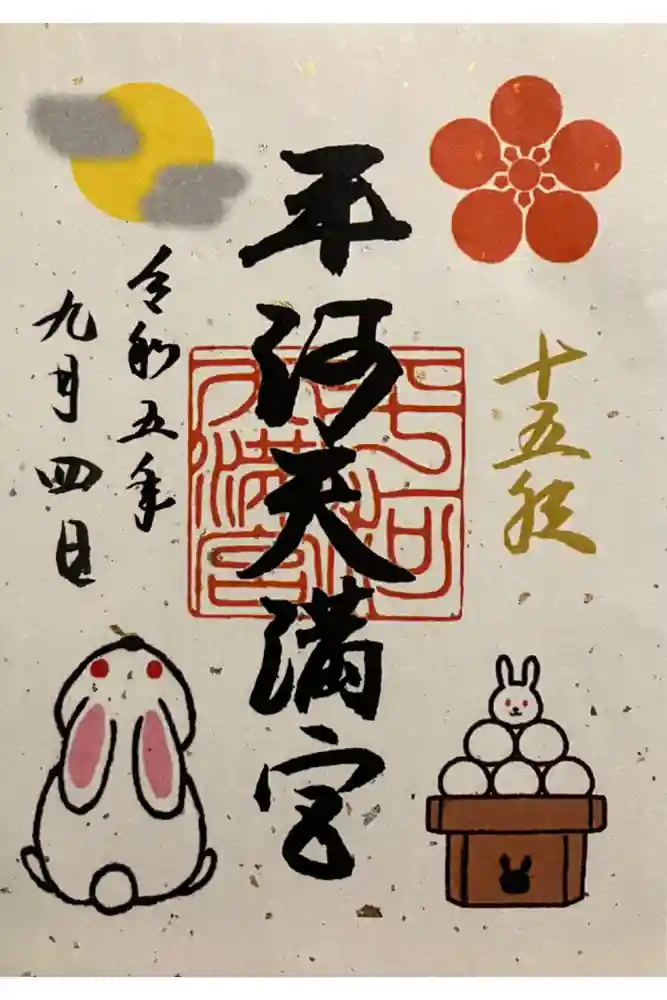 十五夜
平河天満宮
令和五年
九月四日
平河天満宮